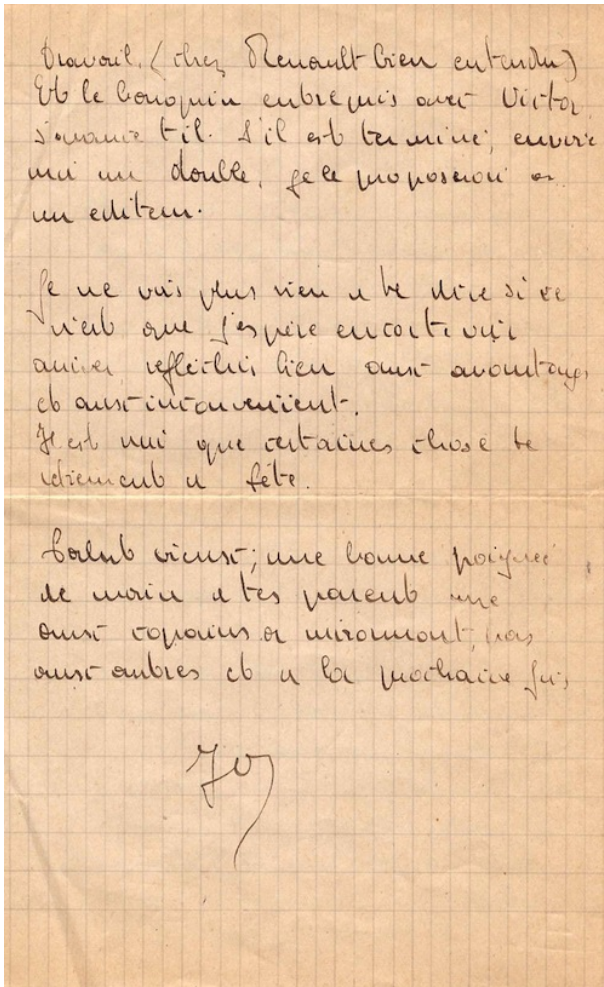 travail. (chez Renault bien entendu)
Et le bouquin entrepris avec Victor,
s'avance t il. S'il est terminé, envoie
moi un double, je le proposerai a
un editeur.
Je ne vois plus rien a te dire si ce
n'est que j'espère encor te voir
arriver, reflechis bien aux avantages
et aux inconvenient.
Il est vrai que certaines chose te
retiennent a
Salut vieux; une bonne poignée
de main a tes parent une
aux copains a miramont, pas
aux autres et a la prochaine fois
Jo